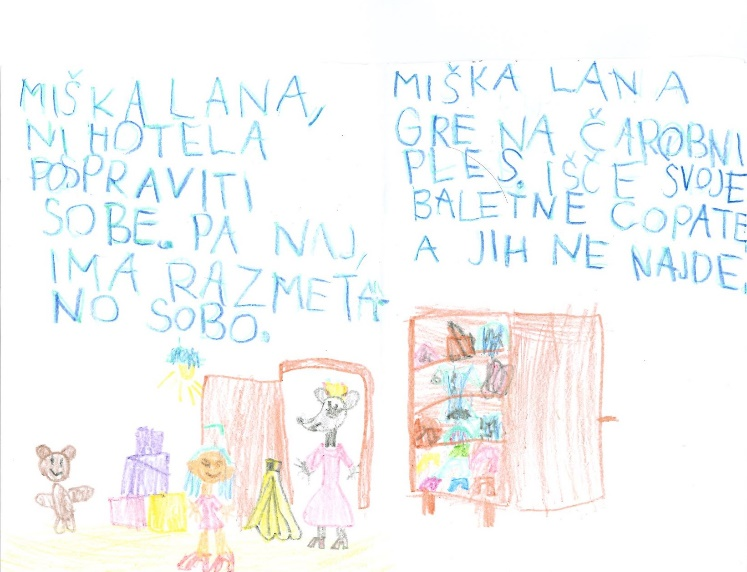 MIŠKA LANA,
NI HOTELA
POSPRAVITI
SOBE. PA NAJ,
IMA RAZMETA-
NO SOBO.
MIŠKA LANA
GRE NA ČAROBNI
PLES. IŠČE SVOJE
BALETNE COPATE,
A JIH NE NAJDE.